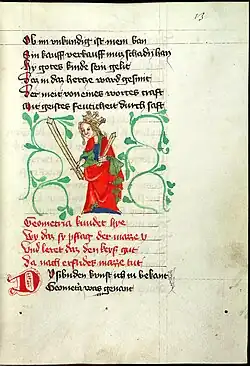 13
Ob im unkundig ist mein ban
Ein kauff verkauff mus schadn han
By gotes kinde sein gelit
Daz in daz hertze ward gesmit
Der meit von eines wortes craft
Mit geistes feuticheit durch saft
Geometria kundet hye
Wy daz sy pflag der masze y
Und leret daz den keys gut
Da nach erfider masze tut
Dy sibnden kunst ich tu bekant
Geometria was genant